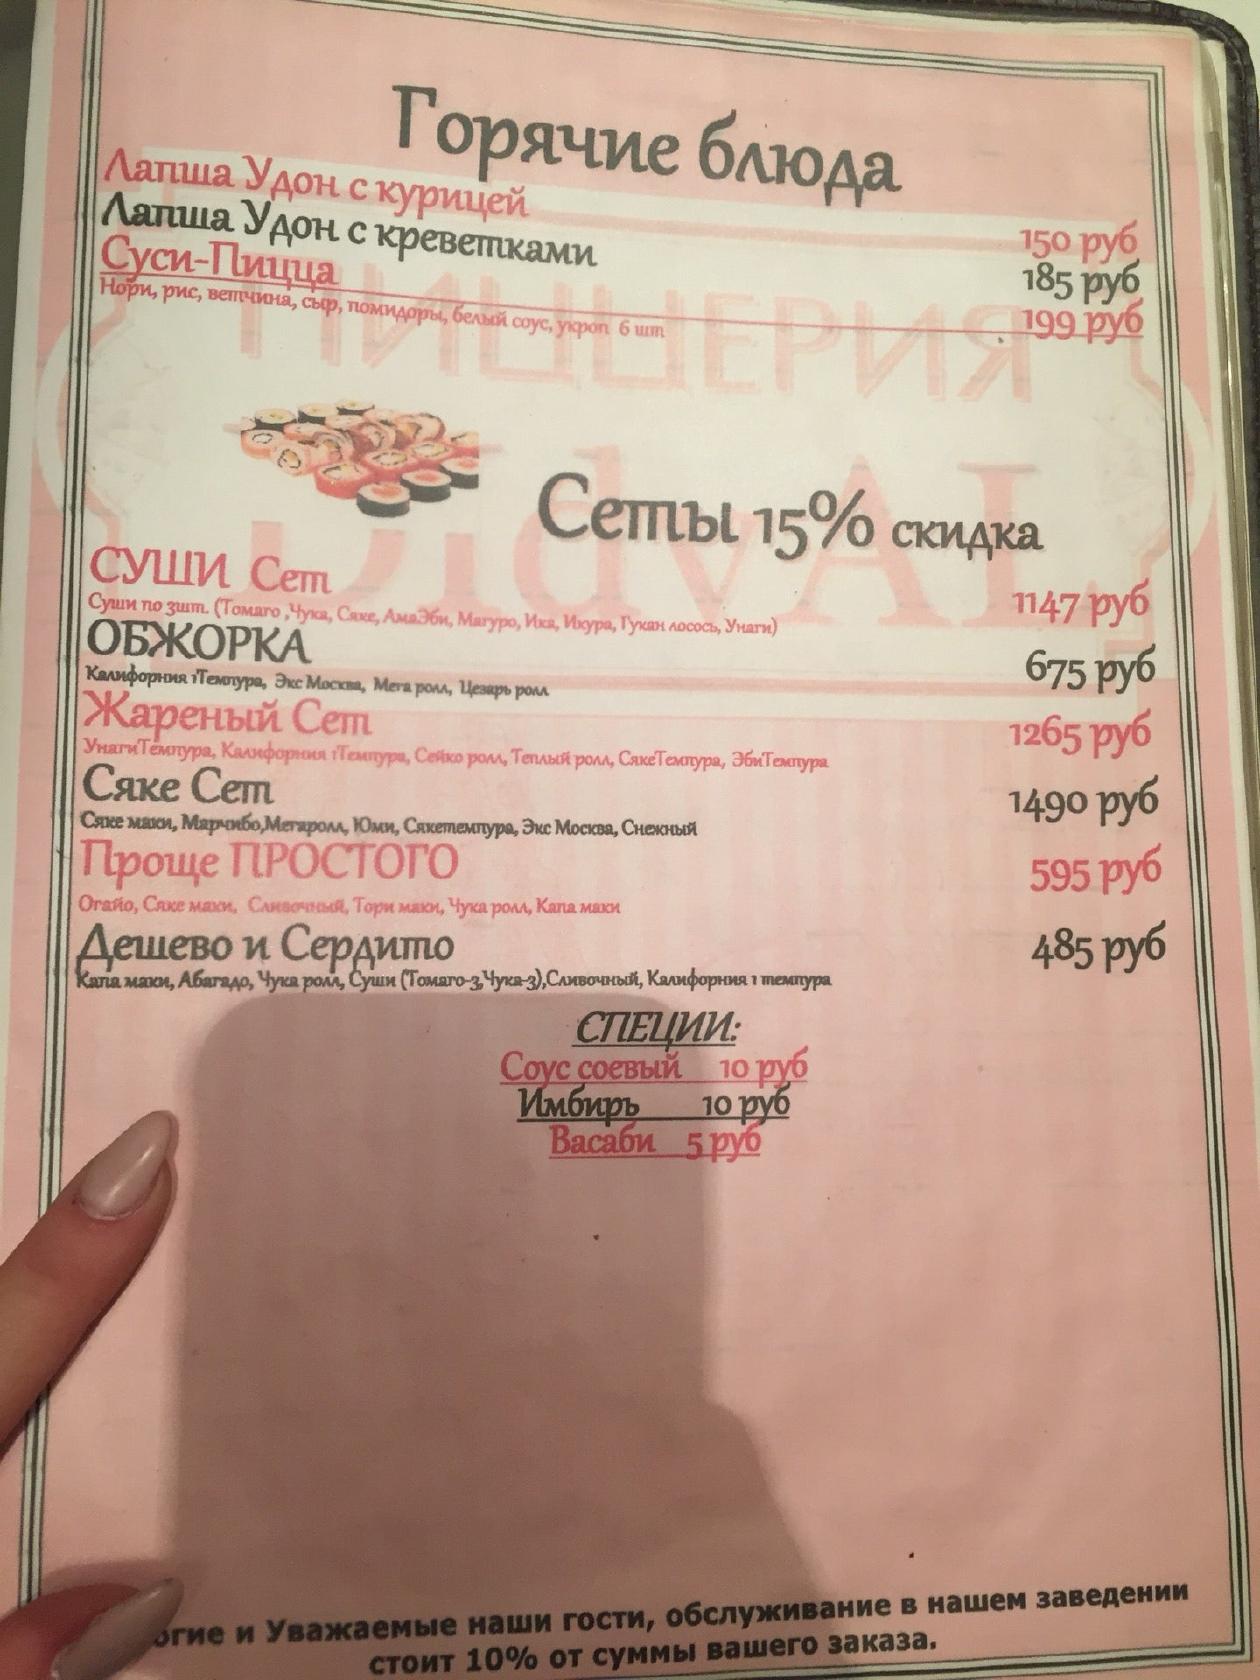 Горячие блюда
Лапша Удон с курицей 150 руб
Лапша Удон с креветками 185 руб
Суси-Пицца 199 руб
Нори, рис, ветчина, сыр, помидоры, белый соус, укроп 6 шт
ПИЦЦЕРИЯ
Сеты 15% скидка
СУШИ Сет 1147 руб
Суши по 3шт. (Томаго ,Чука, Сяке, АмаЭби, Магуро, Ика, Икура, Гукан лосось, Унаги)
ОБЖОРКА 675 руб
Калифорния 1Темпура, Экс Москва, Мега ролл, Цезарь ролл
Жареный Сет 1265 руб
УнагиТемпура, Калифорния 1Темпура, Сейко ролл, Теплый ролл, СякеТемпура, ЭбиТемпура
Сяке Сет 1490 руб
Сяке маки, Марчибо,Мегаролл, Юми, Сякетемпура, Экс Москва, Снежный
Проще ПРОСТОГО 595 руб
Огайо, Сяке маки, Сливочный, Тори маки, Чука ролл, Капа маки
Дешево и Сердито 485 руб
Капа маки, Абагадо, Чука ролл, Суши (Томаго-3,Чука-3),Сливочный, Калифорния 1 темпура
СПЕЦИИ:
Соус соевый 10 руб
Имбирь 10 руб
Васаби 5 руб
огие и Уважаемые наши гости, обслуживание в нашем заведении
стоит 10% от суммы вашего заказа.